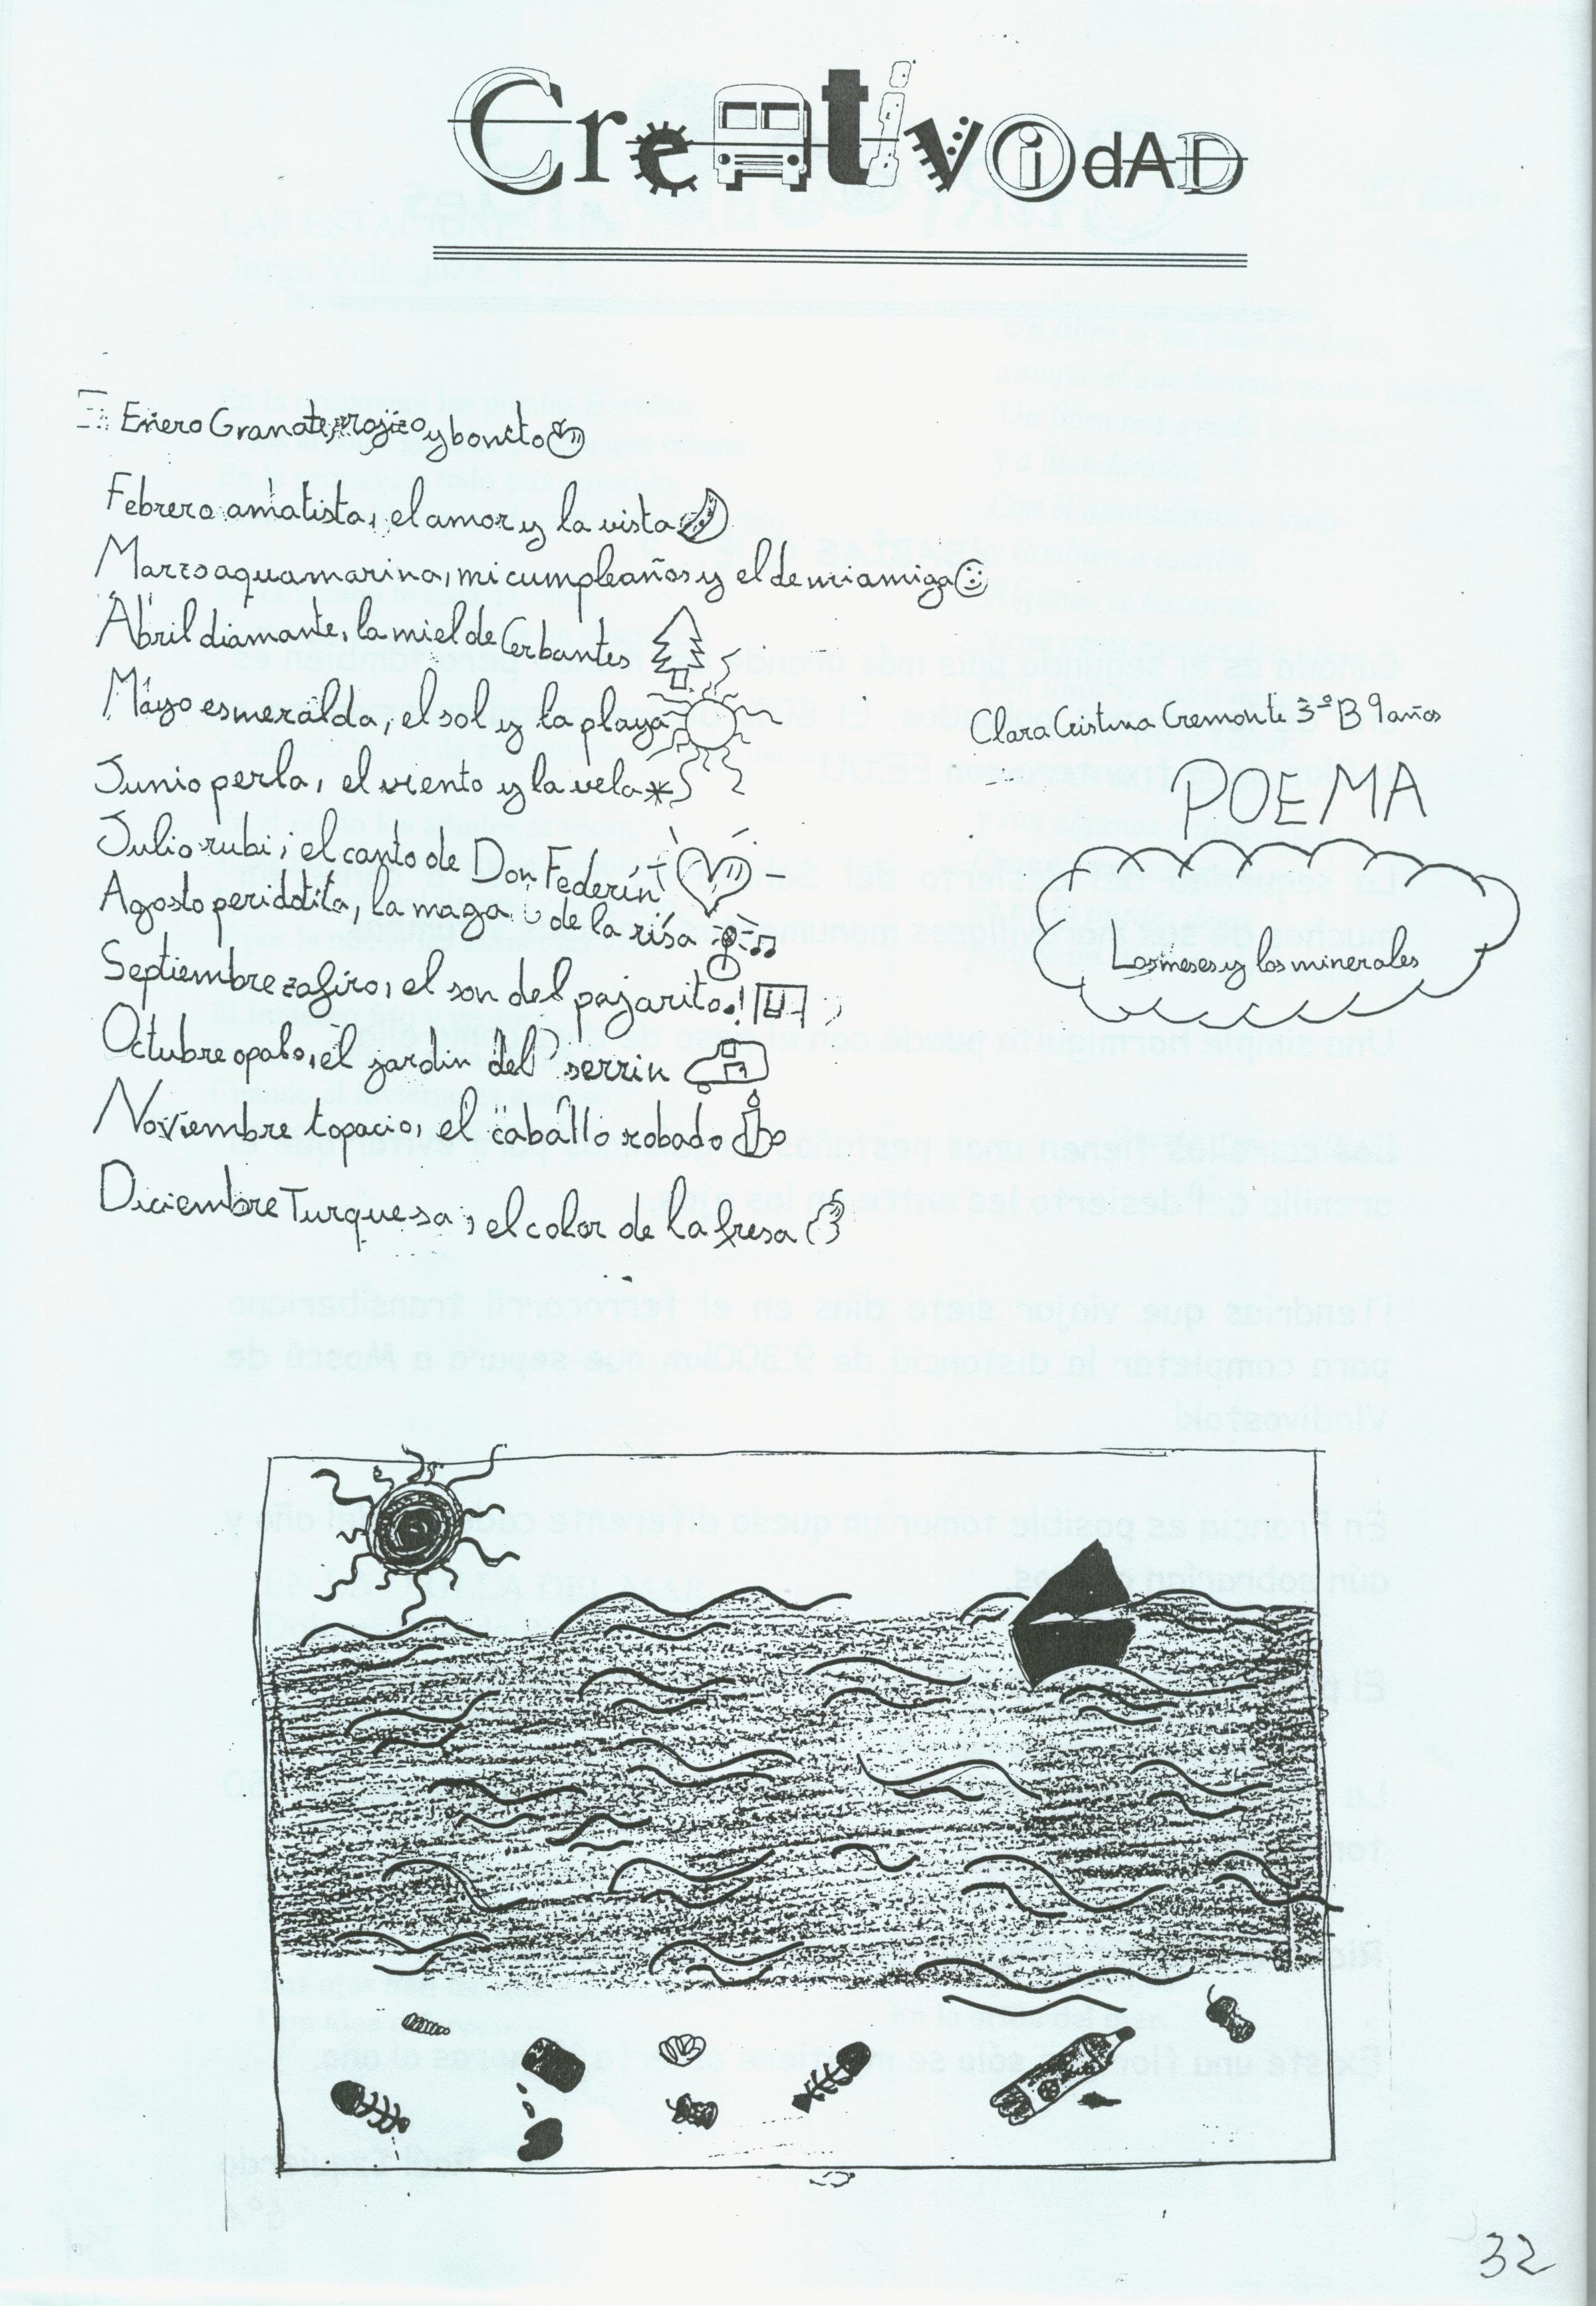 Creatividad
Enero Granate, rojizo y bonito
Febrero amatista, el amor y la vista
Marzo aquamarina, mi cumpleaños y el de mi amiga
Abril diamante, la miel de Cerbantes
Mayo esmeralda, el sol y la playa
Junio perla, el viento y la vela
Julio rubi, el canto de Don Federín
Agosto periddita, la maga de la risa
Septiembre zafiro, el son del pajarito
Octubre opalo, el jardin del serrin
Noviembre topacio, el caballo robado
Diciembre Turquesa, el color de la fresa
Clara Cristina Cremonte 3º B 9 años
POEMA
Los meses y los minerales
32